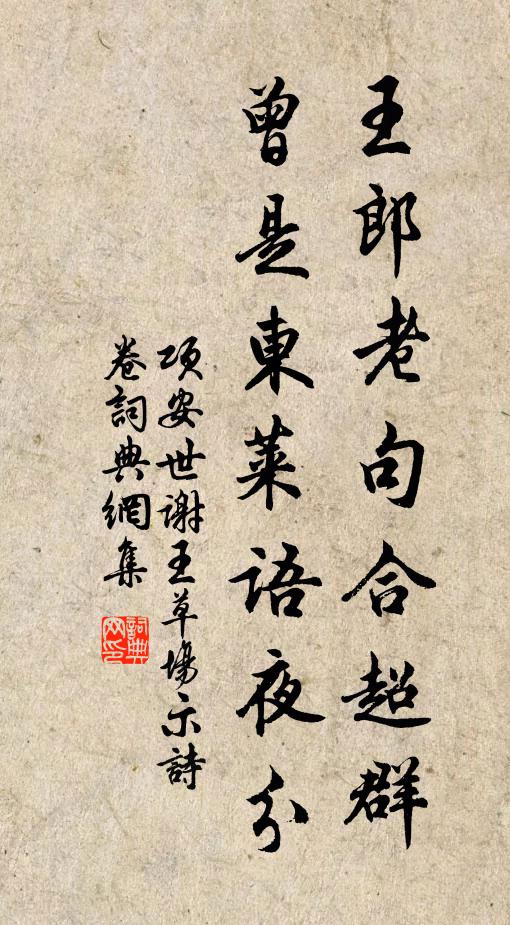 王郎老句合超群
曾是東萊語夜分
項安世謝王草場示詩
卷詞典網集
詞典網印